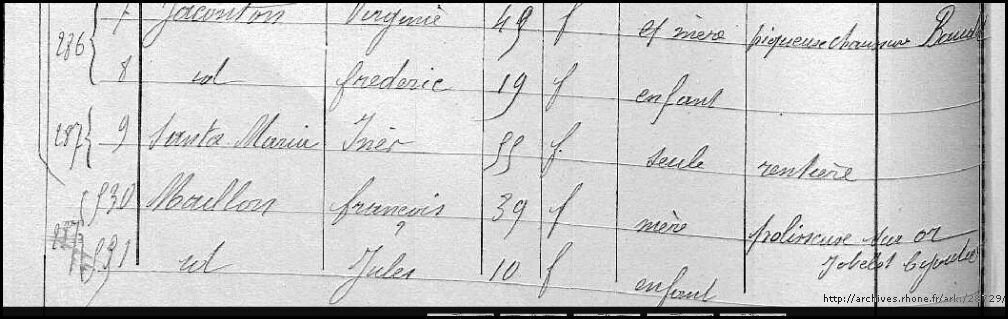 286 7 Virginie 49 f et mère piqueuse chaussure
8 id frederic 19 f enfant
287 9 Santa-Maria Inès 55 f seule rentière
930 Moullon françois 39 f mère polisseuse sur or
931 id Jules 10 f enfant
http://archives.rhone.fr/ark:/28729/